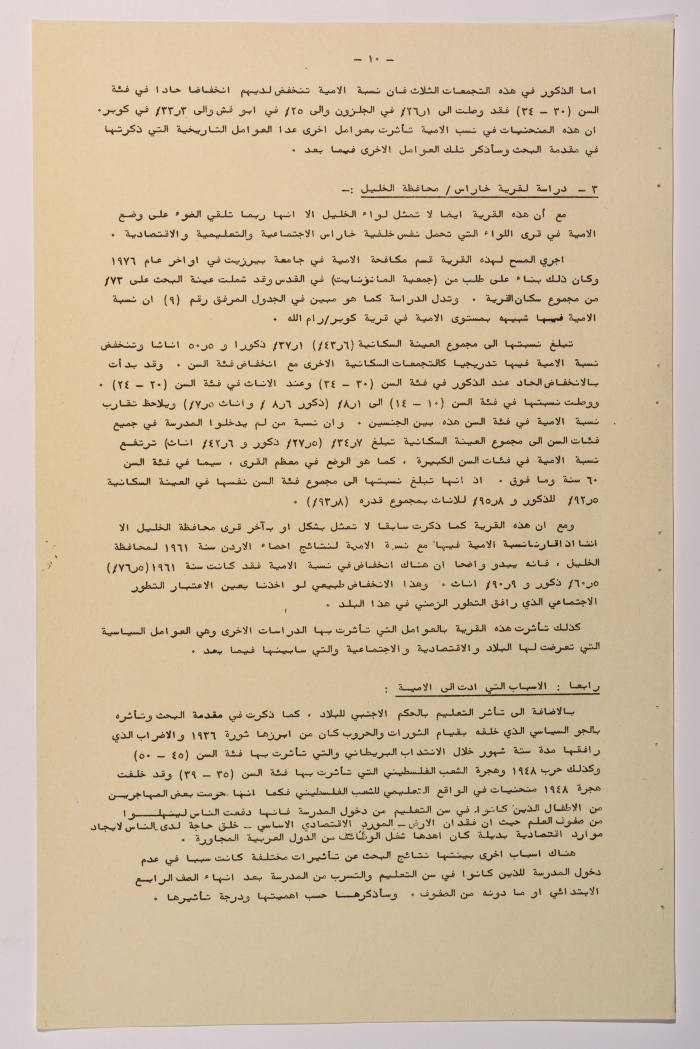 - ١٠ -
اما الذكور في هذه التجمعات الثلاث فان نسبة الامية تنخفض لديهم انخفاضا حادا في فئة
السن (٣٠ - ٣٤) فقد وصلت الى ٢٦ر١٪ في الجلزون والى ٢٥٪ في ابو قش والى ٣٣ر٣٪ في كوبر٠
ان هذه المنحنيات في نسب الامية تأثرت بعوامل اخرى عدا العوامل التاريخية التي ذكرتها
في مقدمة البحث وسأذكر تلك العوامل الاخرى فيما بعد ٠
٣ - دراسة لقرية خاراس / محافظة الخليل :-
مع أن هذه القرية ايضا لا تمثل لواء الخليل الا انها ربما تلقي الضوء على وضع
الامية في قرى اللواء التي تحمل نفس خلفية خاراس الاجتماعية والتعليمية والاقتصادية ٠
اجري المسح لهذه القرية قسم مكافحة الامية في جامعة بيرزيت في اواخر عام ١٩٧٦
وكان ذلك بناء على طلب من (جمعية المانونايت) في القدس وقد شملت عينة البحث على ٧٣٪
من مجموع سكان القرية ٠ وتدل الدراسة كما هو مبين في الجدول المرفق رقم (٩) ان نسبة
الامية فيها شبيهه بمستوى الامية في قرية كوبر/رام الله ٠
تبلغ نسبتها الى مجموع العينة السكانية (٤٣ر٦٪) ٣٧ر١٪ ذكورا و ٥٠ر٥ اناثا وتنخفض
نسبة الامية فيها تدريجيا كالتجمعات السكانية الاخرى مع انخفاض فئة السن ٠ وقد بدأت
بالانخفاض الحاد عند الذكور في فئة السن (٣٠ - ٣٤) وعند الاناث في فئة السن (٢٠ - ٢٤) ٠
ووصلت نسبتها في فئة السن (١٠ - ١٤) الى ٨ر١٪ (ذكور ٨ر٦ ٪ واناث ٧ر٥٪) ويلاحظ تقارب
نسبة الامية في فئة السن هذه بين الجنسين ٠ وان نسبة من لم يدخلوا المدرسة في جميع
فئات السن الى مجموع العينة السكانية تبلغ ٣٤ر٧٪ (٢٧ر٥٪ ذكور و ٤٢ر٦٪ اناث) ترتفع
نسبة الامية في فئات السن الكبيرة ، كما هو الوضع في معظم القرى ، سيما في فئة السن
٦٠ سنة وما فوق ٠ اذ انها تبلغ نسبتها الى مجموع فئة السن نفسها في العينة السكانية
٩٢ر٥٪ للذكور و ٩٥ر٨٪ للاناث بمجموع قدره (٩٣ر٨٪) ٠
ومع ان هذه القرية كما ذكرت سابقا لا تمثل بشكل او بآخر قرى محافظة الخليل الا
اننا اذا قارنا نسبة الامية فيها مع نسبة الامية لنتائج احصاء الاردن سنة ١٩٦١ لمحافظة
الخليل ، فانه يبدو واضحا ان هناك انخفاض في نسبة الامية فقد كانت سنة ١٩٦١ (٧٦ر٥٪)
٦٠ر٥٪ ذكور و ٩٠ر٩٪ اناث ٠ وهذا الانخفاض طبيعي لو اخذنا بعين الاعتبار التطور
الاجتماعي الذي رافق التطور الزمني في هذا البلد ٠
كذلك تأثرت هذه القرية بالعوامل التي تأثرت بها الدراسات الاخرى وهي العوامل السياسية
التي تعرضت لها البلاد والاقتصادية والاجتماعية والتي سابينها فيما بعد ٠
رابعا : الاسباب التي ادت الى الامية :
بالاضافة الى تأثر التعليم بالحكم الاجنبي للبلاد ، كما ذكرت في مقدمة البحث وتأثره
بالجو السياسي الذي خلقه بقيام الثورات والحروب كان من ابرزها ثورة ١٩٣٦ والاضراب الذي
رافقها مدة ستة شهور خلال الانتداب البريطاني والتي تأثرت بها فئة السن (٤٥ - ٥٠)
وكذلك حرب ١٩٤٨ وهجرة الشعب الفلسطيني التي تأثرت بها فئة السن (٣٥ - ٣٩) وقد خلفت
هجرة ١٩٤٨ منحنيات في الواقع التعليمي للشعب الفلسطيني فكما انها حرمت بعض المهاجرين
من الاطفال الذين كانوا في سن التعليم من دخول المدرسة فانها دفعت الناس لينهلوا
من صفوف العلم حيث ان فقدان الارض - المورد الاقتصادي الاساسي - خلق حاجة لدى الناس لايجاد
موارد اقتصادية بديلة كان اهدها شغل الوظائف من الدول العربية المجاورة ٠
هناك اسباب اخرى بينتها نتائج البحث عن تأثيرات مختلفة كانت سببا في عدم
دخول المدرسة للذين كانوا في سن التعليم والتسرب من المدرسة بعد انهاء الصف الرابع
الابتدائي او ما دونه من الصفوف ٠ وسأذكرها حسب اهميتها ودرجة تأثيرها ٠